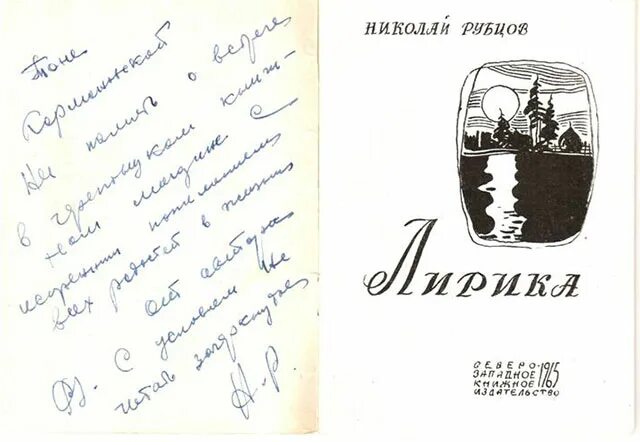 Тоне
Карманской
На память о встрече
в грязнущем книж-
ном магазине с
искренними пожеланиями
всех радостей в жизни
от автора
С условием не
читать зачеркнутое
Н.Р.
НИКОЛАЙ РУБЦОВ
ЛИРИКА
СЕВЕРО-
ЗАПАДНОЕ
КНИЖНОЕ
ИЗДАТЕЛЬСТВО
1965